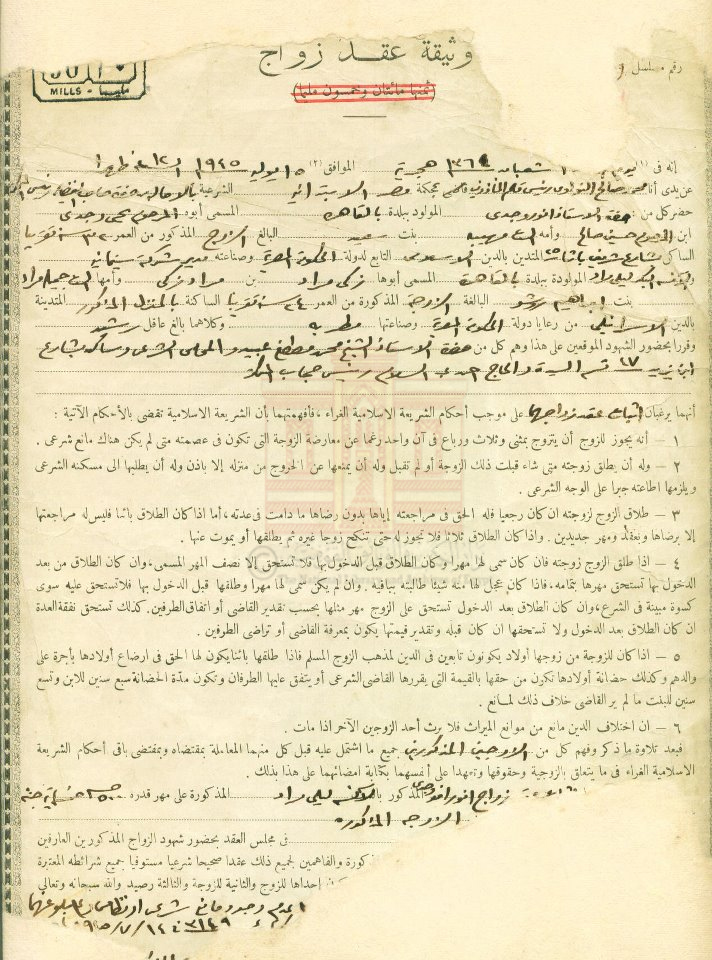 وثيقة عقد زواج
رقم مسلسل
MILLS - مليما
ثمنها مائتان وخمسون مليما
إنه فى (١) يوم شعبان ١٣٦٤ هجرية الموافق (٢) ١٥ يوليه ١٩٤٥
عن يدى أنا محمد صالح رئيس قلم بمحكمة مصر الابتدائية الشرعية
حضر كل من : حضرة الاستاذ انور وجدى المولود ببلدة بالقاهرة المسمى أبوه المرحوم يحيى وجدى
ابن المرحوم حسين صالح وأمه الست مهيبه بنت سعيد البالغ الزوج المذكور من العمر
الساكن بشارع شريف باشا المتدين بالدين الاسلامى التابع لدولة الحكومة المصرية وصناعته مدير شركة سينمائية
ليلى مراد المولودة ببلدة بالقاهرة المسمى أبوها زكى مراد بن مراد زكى وأمها الست جميله مراد
بنت ابراهيم روشو البالغة الزوجة المذكورة من العمر ٢٤ سنة تقريبا الساكنة بالمنزل المذكور المتدينة
بالدين الاسرائيلى من رعايا دولة الحكومة المصرية وصناعتها مطربه وكلاهما بالغ عاقل رشيد
وقررا بحضور الشهود الموقعين على هذا وهم كل من حضرة الاستاذ الشيخ محمد مصطفى المحامى الشرعى وساكن بشارع
١٧ قسم السيدة والحاج احمد السلام رئيس حجاب المحكمة
أنهما يرغبان اثبات عقد زواجهما على موجب أحكام الشريعة الاسلامية الغراء ، فأفهمتهما بأن الشريعة الاسلامية تقضى بالأحكام الآتية :
١ — أنه يجوز للزوج أن يتزوج بمثنى وثلاث ورباع فى آن واحد رغما عن معارضة الزوجة التى تكون فى عصمته متى لم يكن هناك مانع شرعى .
٢ — وله أن يطلق زوجته متى شاء قبلت ذلك الزوجة أو لم تقبل وله أن يمنعها عن الخروج من منزله إلا باذن وله أن يطلبها الى مسكنه الشرعى
ويلزمها اطاعته جبرا على الوجه الشرعى .
٣ — طلاق الزوج لزوجته ان كان رجعيا فله الحق فى مراجعته إياها بدون رضاها ما دامت فى عدته ، أما اذا كان الطلاق بائنا فليس له مراجعتها
إلا برضاها وبعقد ومهر جديدين . واذا كان الطلاق ثلاثا فلا تجوز له حتى تنكح زوجا غيره ثم يطلقها أو يموت عنها .
٤ — اذا طلق الزوج زوجته فان كان سمى لها مهرا وكان الطلاق قبل الدخول بها فلا تستحق إلا نصف المهر المسمى ، وان كان الطلاق من بعد
الدخول بها تستحق مهرها بتمامه ، فاذا كان عجل لها منه شيئا طالبته بباقيه . وان لم يكن سمى لها مهرا وطلقها قبل الدخول بها فلا تستحق عليه سوى
كسوة مبينة فى الشرع ، وان كان الطلاق بعد الدخول تستحق على الزوج مهر مثلها بحسب تقدير القاضى أو اتفاق الطرفين . كذلك تستحق نفقة العدة
ان كان الطلاق بعد الدخول ولا تستحقها ان كان قبله وتقدير قيمتها يكون بمعرفة القاضى أو تراضى الطرفين .
٥ — اذا كان للزوجة من زوجها أولاد يكونون تابعين فى الدين لمذهب الزوج المسلم فاذا طلقها بائنا يكون لها الحق فى ارضاع أولادها بأجرة على
والدهم وكذلك حضانة أولادها تكون من حقها بالقيمة التى يقررها القاضى الشرعى أو يتفق عليها الطرفان وتكون مدّة الحضانة سبع سنين للابن وتسع
سنين للبنت ما لم ير القاضى خلاف ذلك لمانع .
٦ — ان اختلاف الدين مانع من موانع الميراث فلا يرث أحد الزوجين الآخر اذا مات .
فبعد تلاوة ما ذكر وفهم كل من الزوجين المذكورين جميع ما اشتمل عليه قبل كل منهما المعاملة بمقتضاه وبمقتضى باقى أحكام الشريعة
الاسلامية الغراء فى ما يتعلق بالزوجية وحقوقها وتعهدا على أنفسهما بكتابة امضائهما على هذا بذلك .
زواج انور وجدى المذكور بالآنسة ليلى مراد المذكورة على مهر قدره
الزوجه المذكوره
فى مجلس العقد بحضور شهود الزواج المذكورين العارفين
المذكورة والفاهمين لجميع ذلك عقدا صحيحا شرعيا مستوفيا جميع شرائطه المعتبرة
إحداها للزوج والثانية للزوجة والثالثة رصيد والله سبحانه وتعالى
وجود مانع شرعى